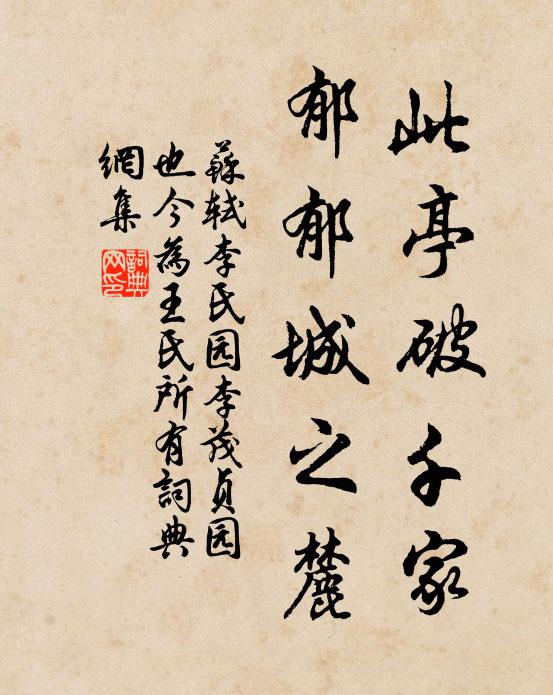 此亭破千家
郁郁城之麓
蘇軾李氏园李茂贞园
也今為王氏所有詞典
網集
詞典网印